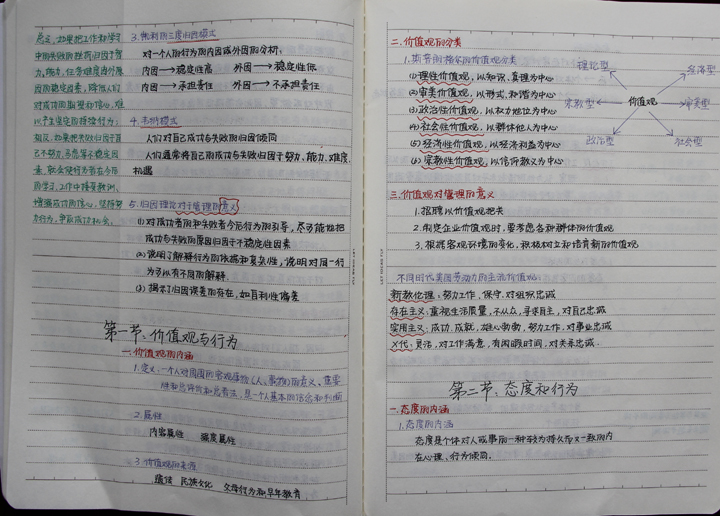 总之，如果把工作和学习
中的失败的挫折归因于智
力、能力、任务难度内外原
因的稳定因素，降低人们
对成功的期望和信心，难
以产生坚定的持续行为；
相反，如果把失败归因于自
己不努力、马虎等不稳定因
素，就会使行为者在今后
的学习、工作中接受教训，
增强成功的信心，坚持努
力行为，争取成功机会。
3.凯利的三度归因模式
对一个人的行为的内因或外因的分析：
内因→稳定性高 外因→稳定性低
内因→承担责任 外因→不承担责任
4.韦纳模式
人们对自己成功与失败的归因倾向
人们通常将自己的成功与失败归因于努力、能力、难度、
机遇
5.归因理论对于管理的意义
(1)对成功者的和失败者今后行为的引导，尽可能地把
成功与失败的原因归因于不稳定性因素
(2)说明了解释行为的依据和复杂性，说明对同一行
为可以有不同的解释
(3)揭示了归因误差的存在，如自利性偏差
第一节：价值观与行为
一.价值观的内涵
1.定义：一个人对周围的客观事物(人、事物)的意义、重要
性和总评价和总看法，是一个人基本的信念和判断
2.属性
内容属性 强度属性
3.价值观的来源
遗传 民族文化 父母行为和早年教育
二.价值观的分类
1.斯普朗格尔的价值观分类
(1)理性价值观，以知识、真理为中心
(2)审美价值观，以形式、和谐为中心
(3)政治性价值观，以权力地位为中心
(4)社会性价值观，以群体他人为中心
(5)经济性价值观，以经济利益为中心
(6)宗教性价值观，以信仰教义为中心
理论型
经济型
宗教型
价值观
审美型
政治型
社会型
三.价值观对管理的意义
1.招聘以价值观把关
2.制定企业价值观时，要考虑各种群体的价值观
3.根据客观环境的变化，积极树立和培育新的价值观
不同时代美国劳动力的主流价值观：
新教伦理：努力工作，保守，对组织忠诚
存在主义：重视生活质量，不从众，寻求自主，对自己忠诚
实用主义：成功，成就，雄心勃勃，努力工作，对事业忠诚
X代：灵活，对工作满意，有闲暇时间，对关系忠诚.
第二节：态度和行为
一.态度的内涵
1.态度的内涵
态度是个体对人或事的一种较为持久而又一致的内
在心理、行为倾向.